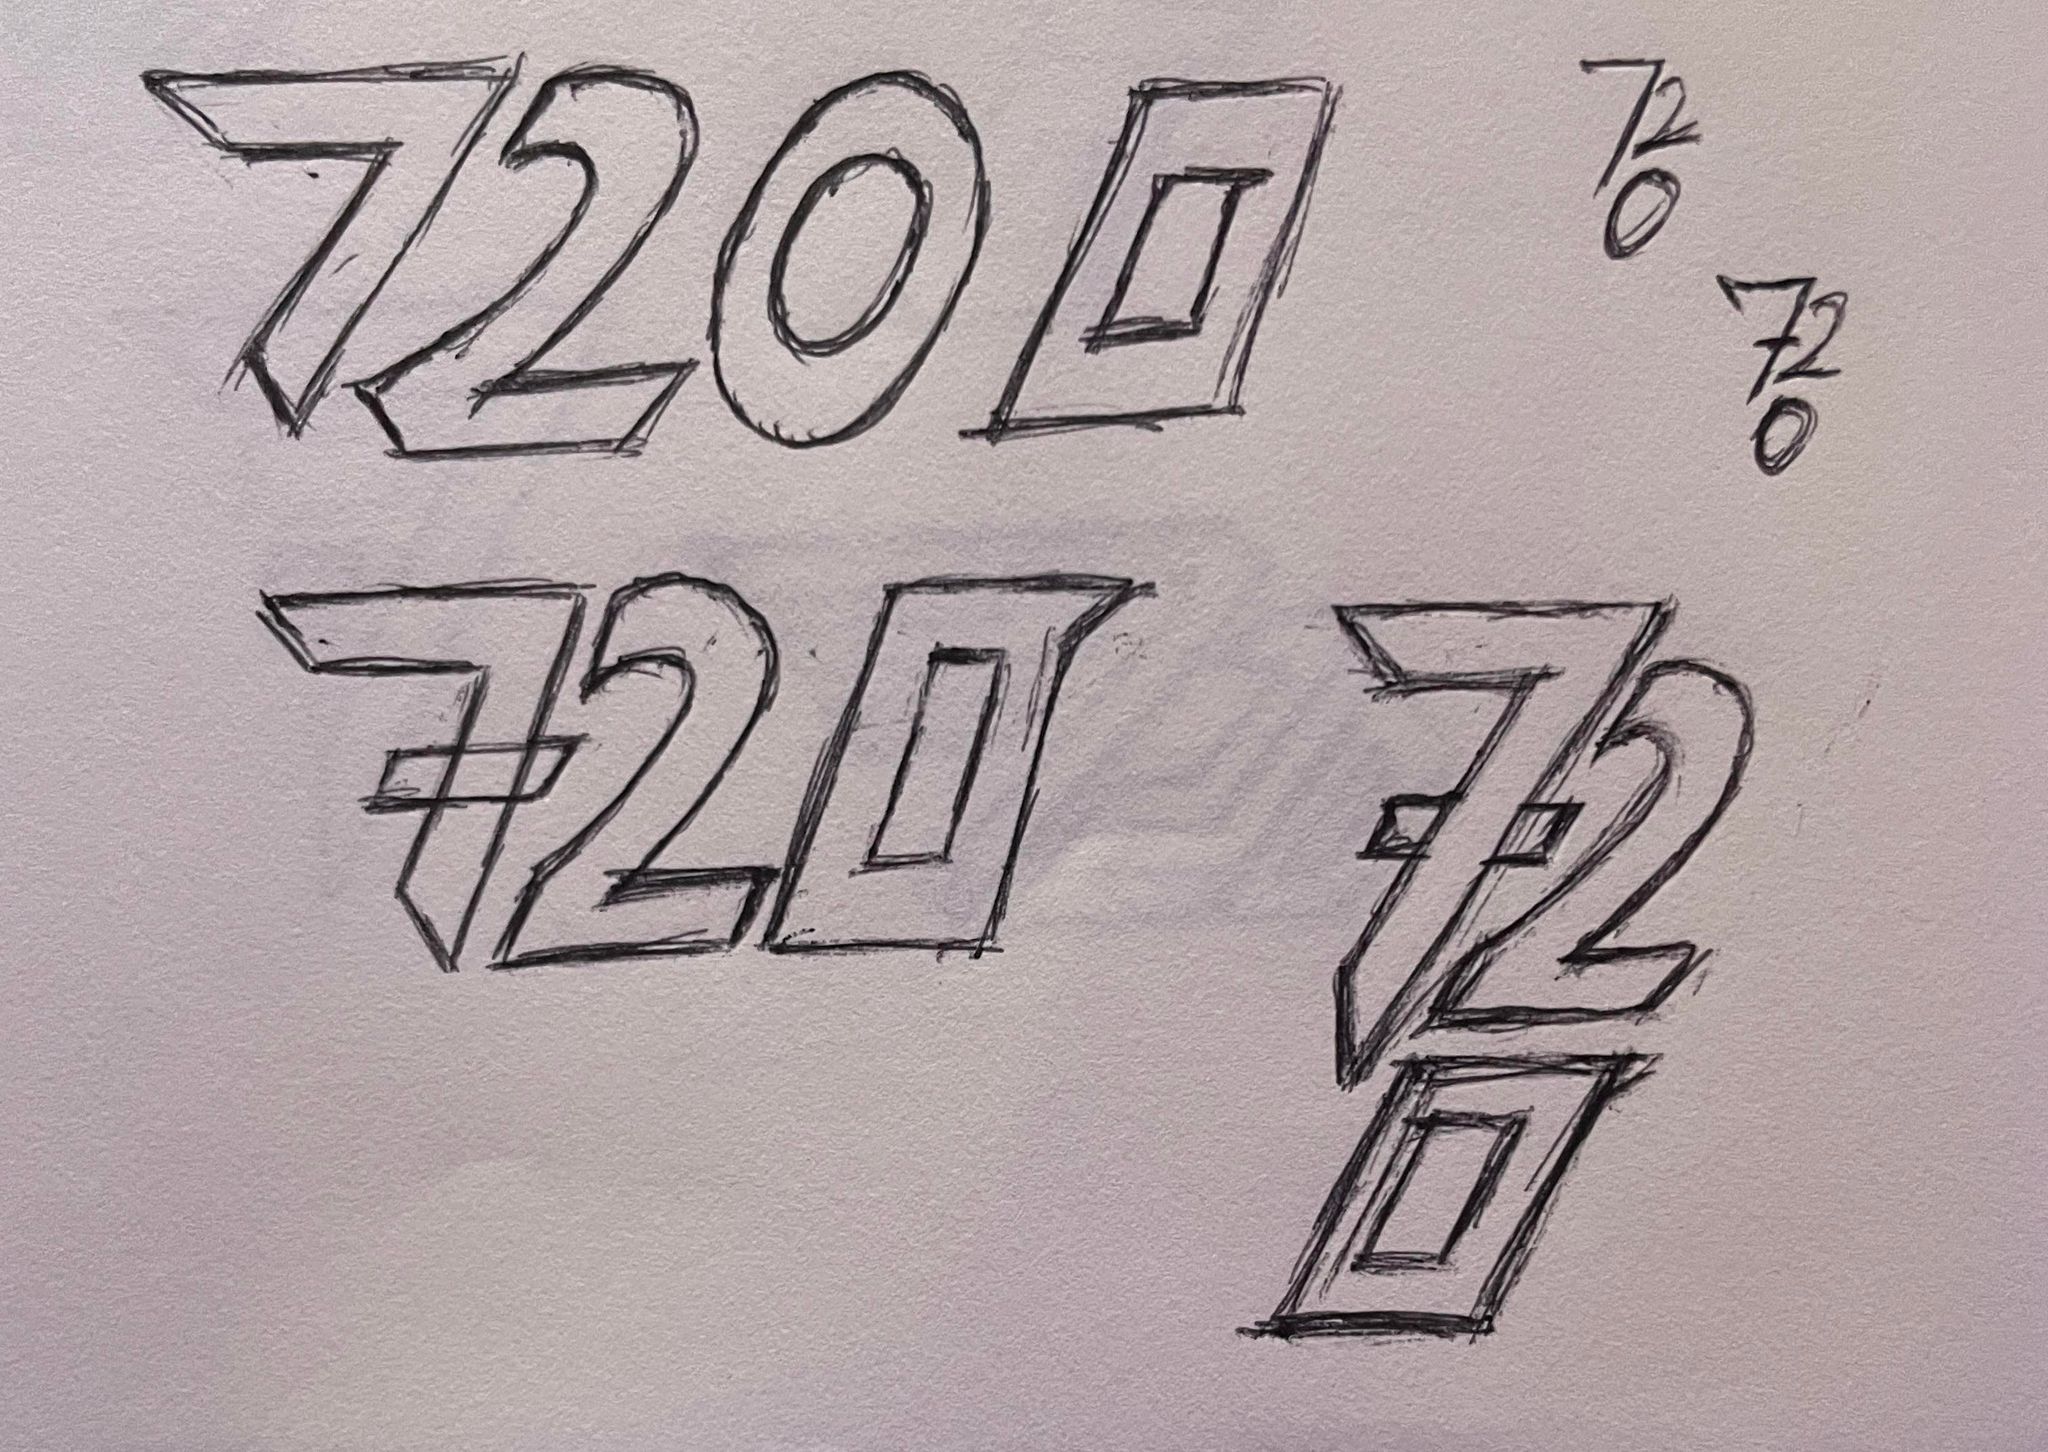 7200
72
0
72
0
720
72
0